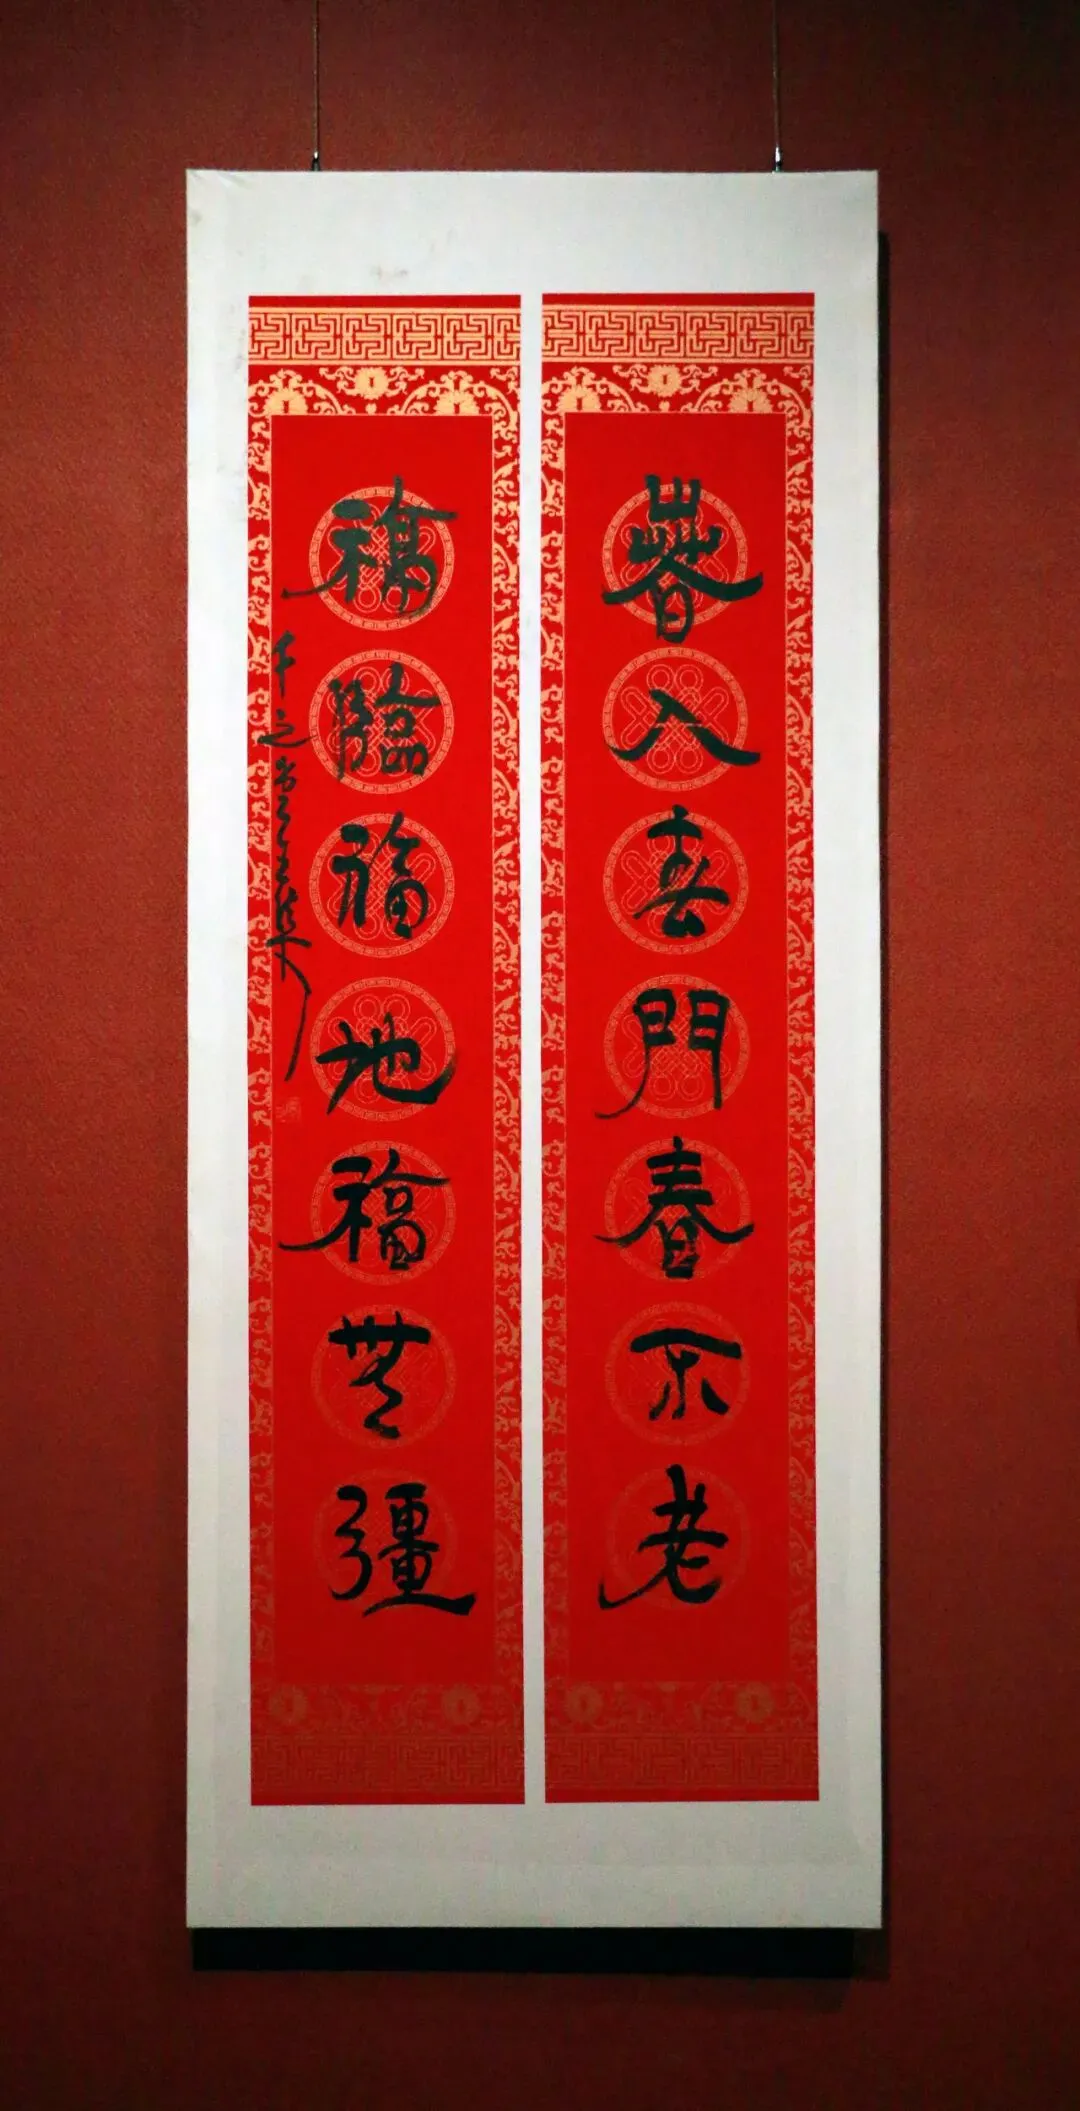 春入喜門春不老
福臨福地福無疆